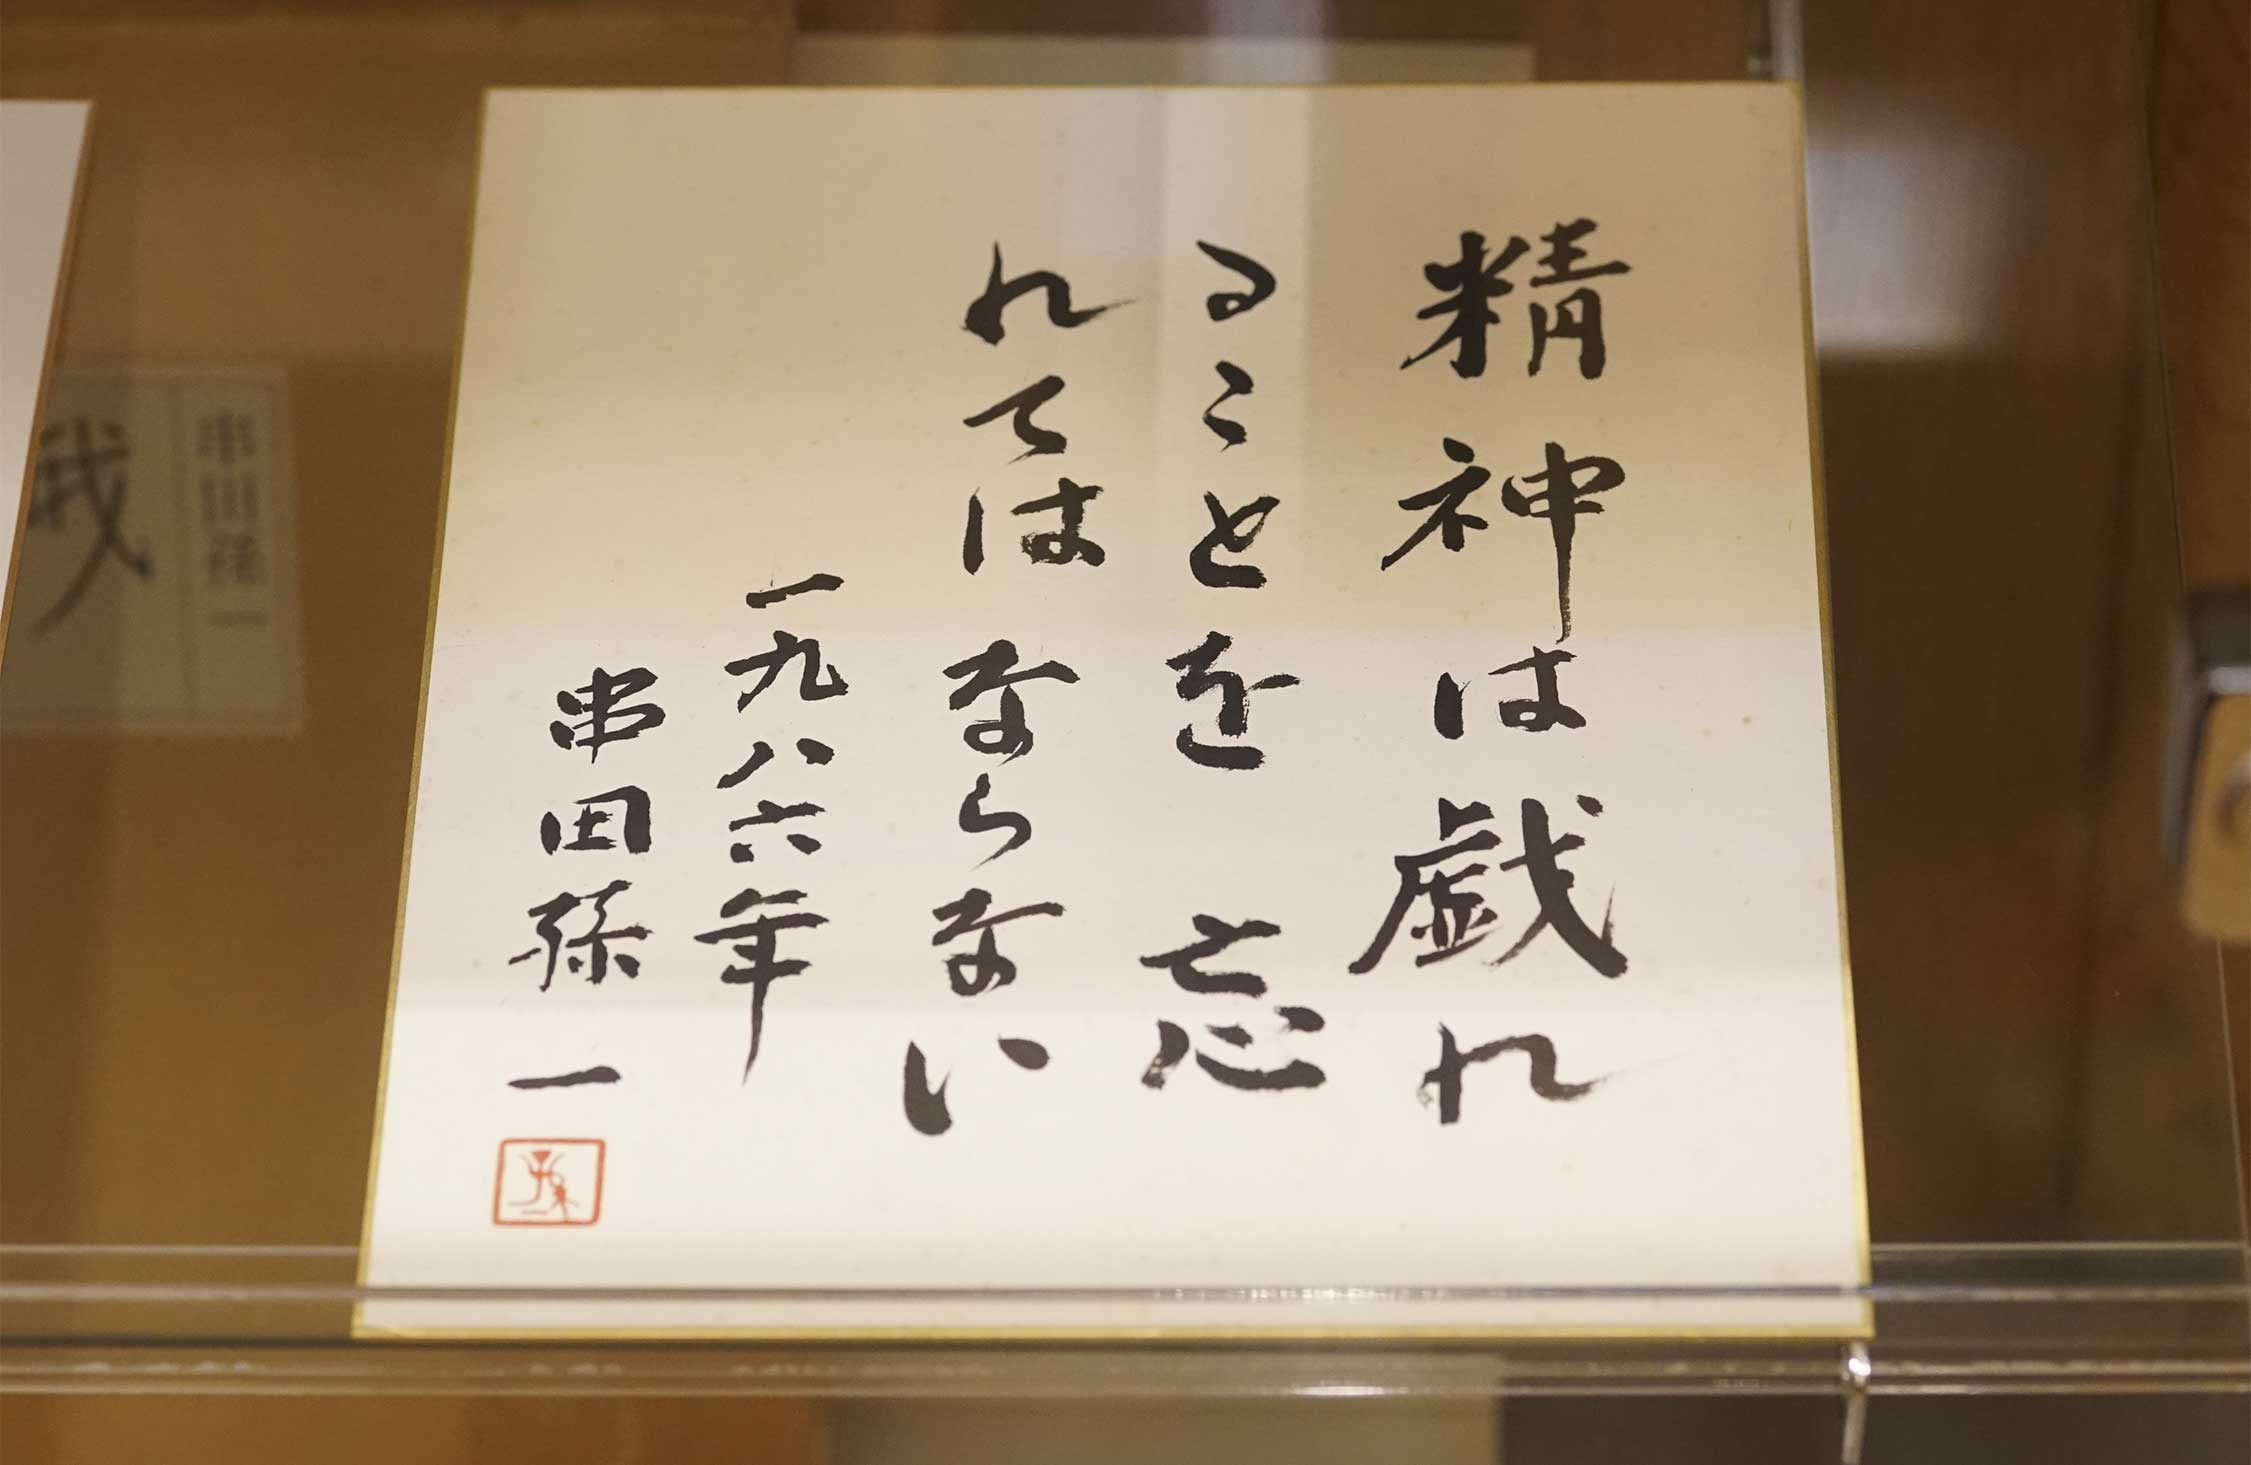 精神は戯れ
ることを忘
れてはならない
一九八六年
串田孫一
串田孫一